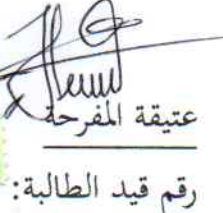 عتيقة المفرحة
رقم قيد الطالبة: